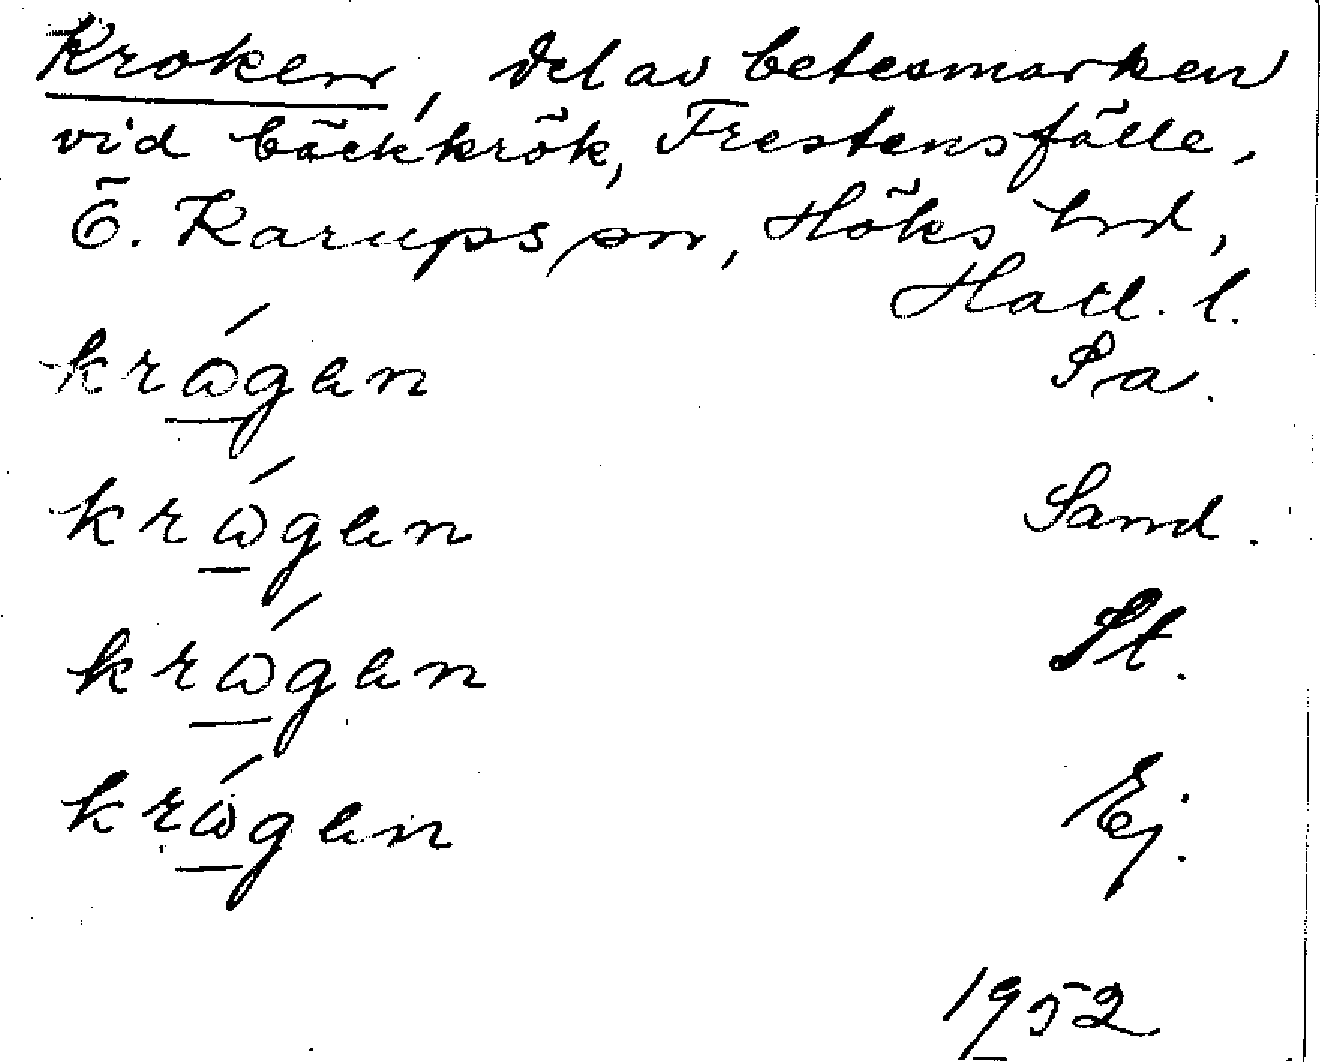 Kroken, del av betesmarken
vid bäckkrök, Frestensfälle,
Ö. Karups sn, Höks hd,
Hall. l.
krǻgen Pa.
krǻgen Sand.
krǻgen St.
krǻgen Ej.
1952